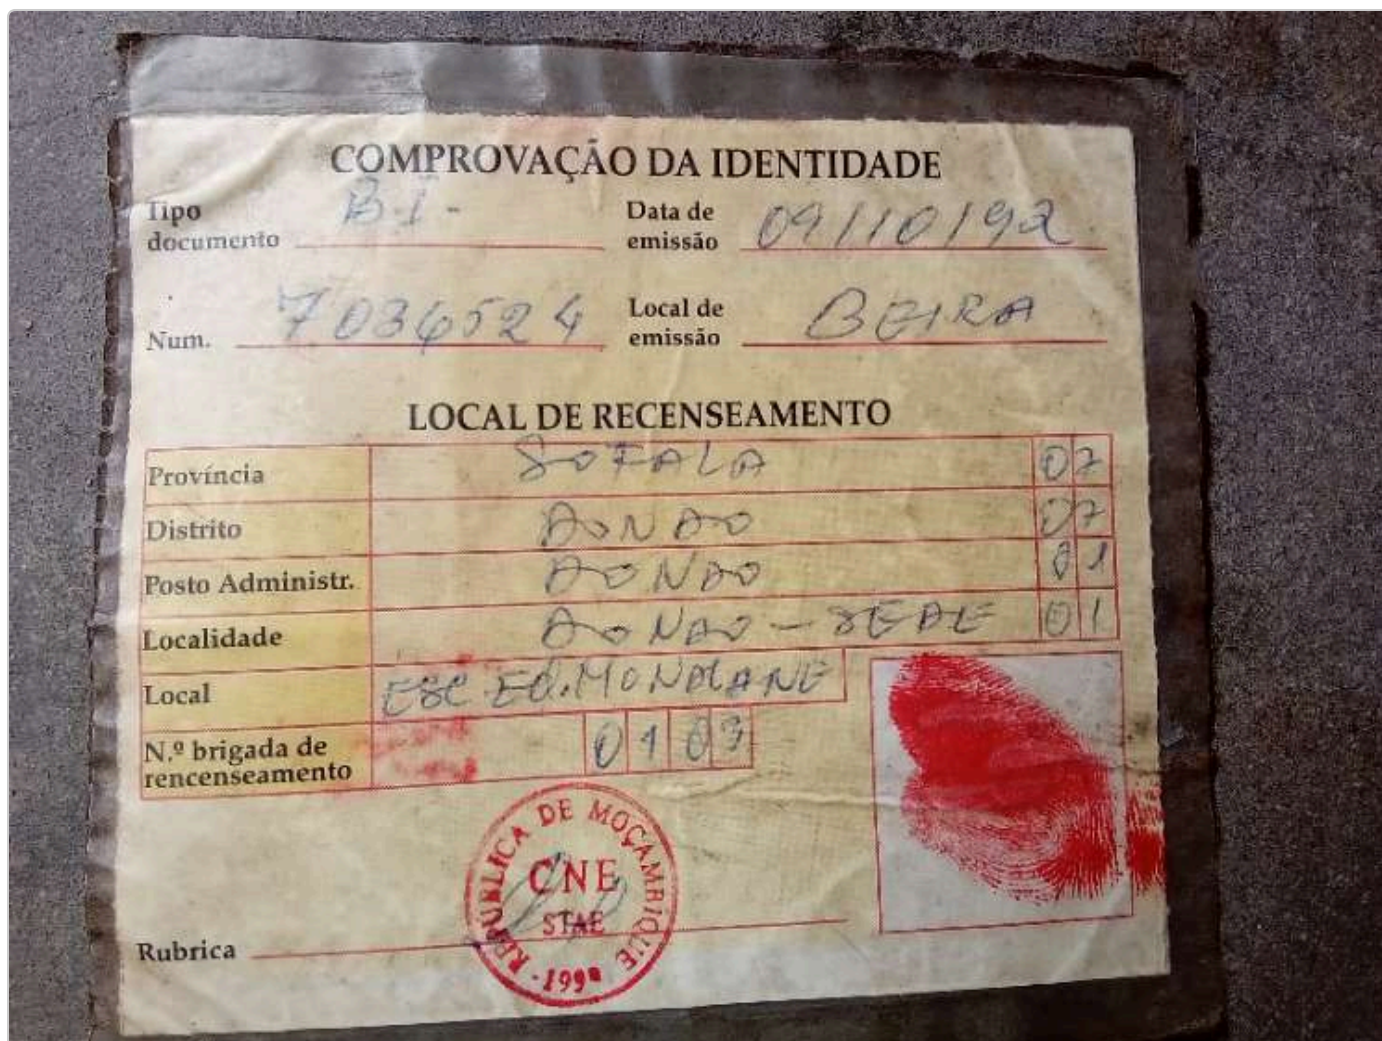 COMPROVAÇÃO DA IDENTIDADE
Tipo documento B.I. Data de emissão 09/10/92
Num. 7036524 Local de emissão BEIRA
LOCAL DE RECENSEAMENTO
Província SOFALA 07
Distrito DONDO 07
Posto Administr. DONDO 01
Localidade DONDO - SEDE 01
Local ESC ED. MONDLANE
N.º brigada de rencenseamento 0103
REPUBLICA DE MOÇAMBIQUE
CNE
STAE
Rubrica